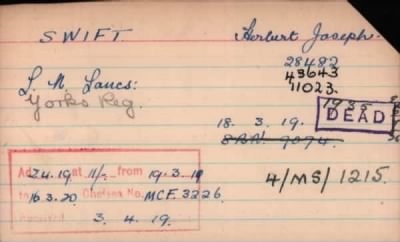 SWIFT Herbert Joseph.
28482
L. N. Lancs: 43643
Yorks Reg. 11023.
18. 3. 19. DEAD
8BA/. 9074.
Ad 24.19 at 11/- from 19.3.19
to 16.3.20 Chelsea No. MCF.3226. 4/MS/1215.
3. 4. 19.